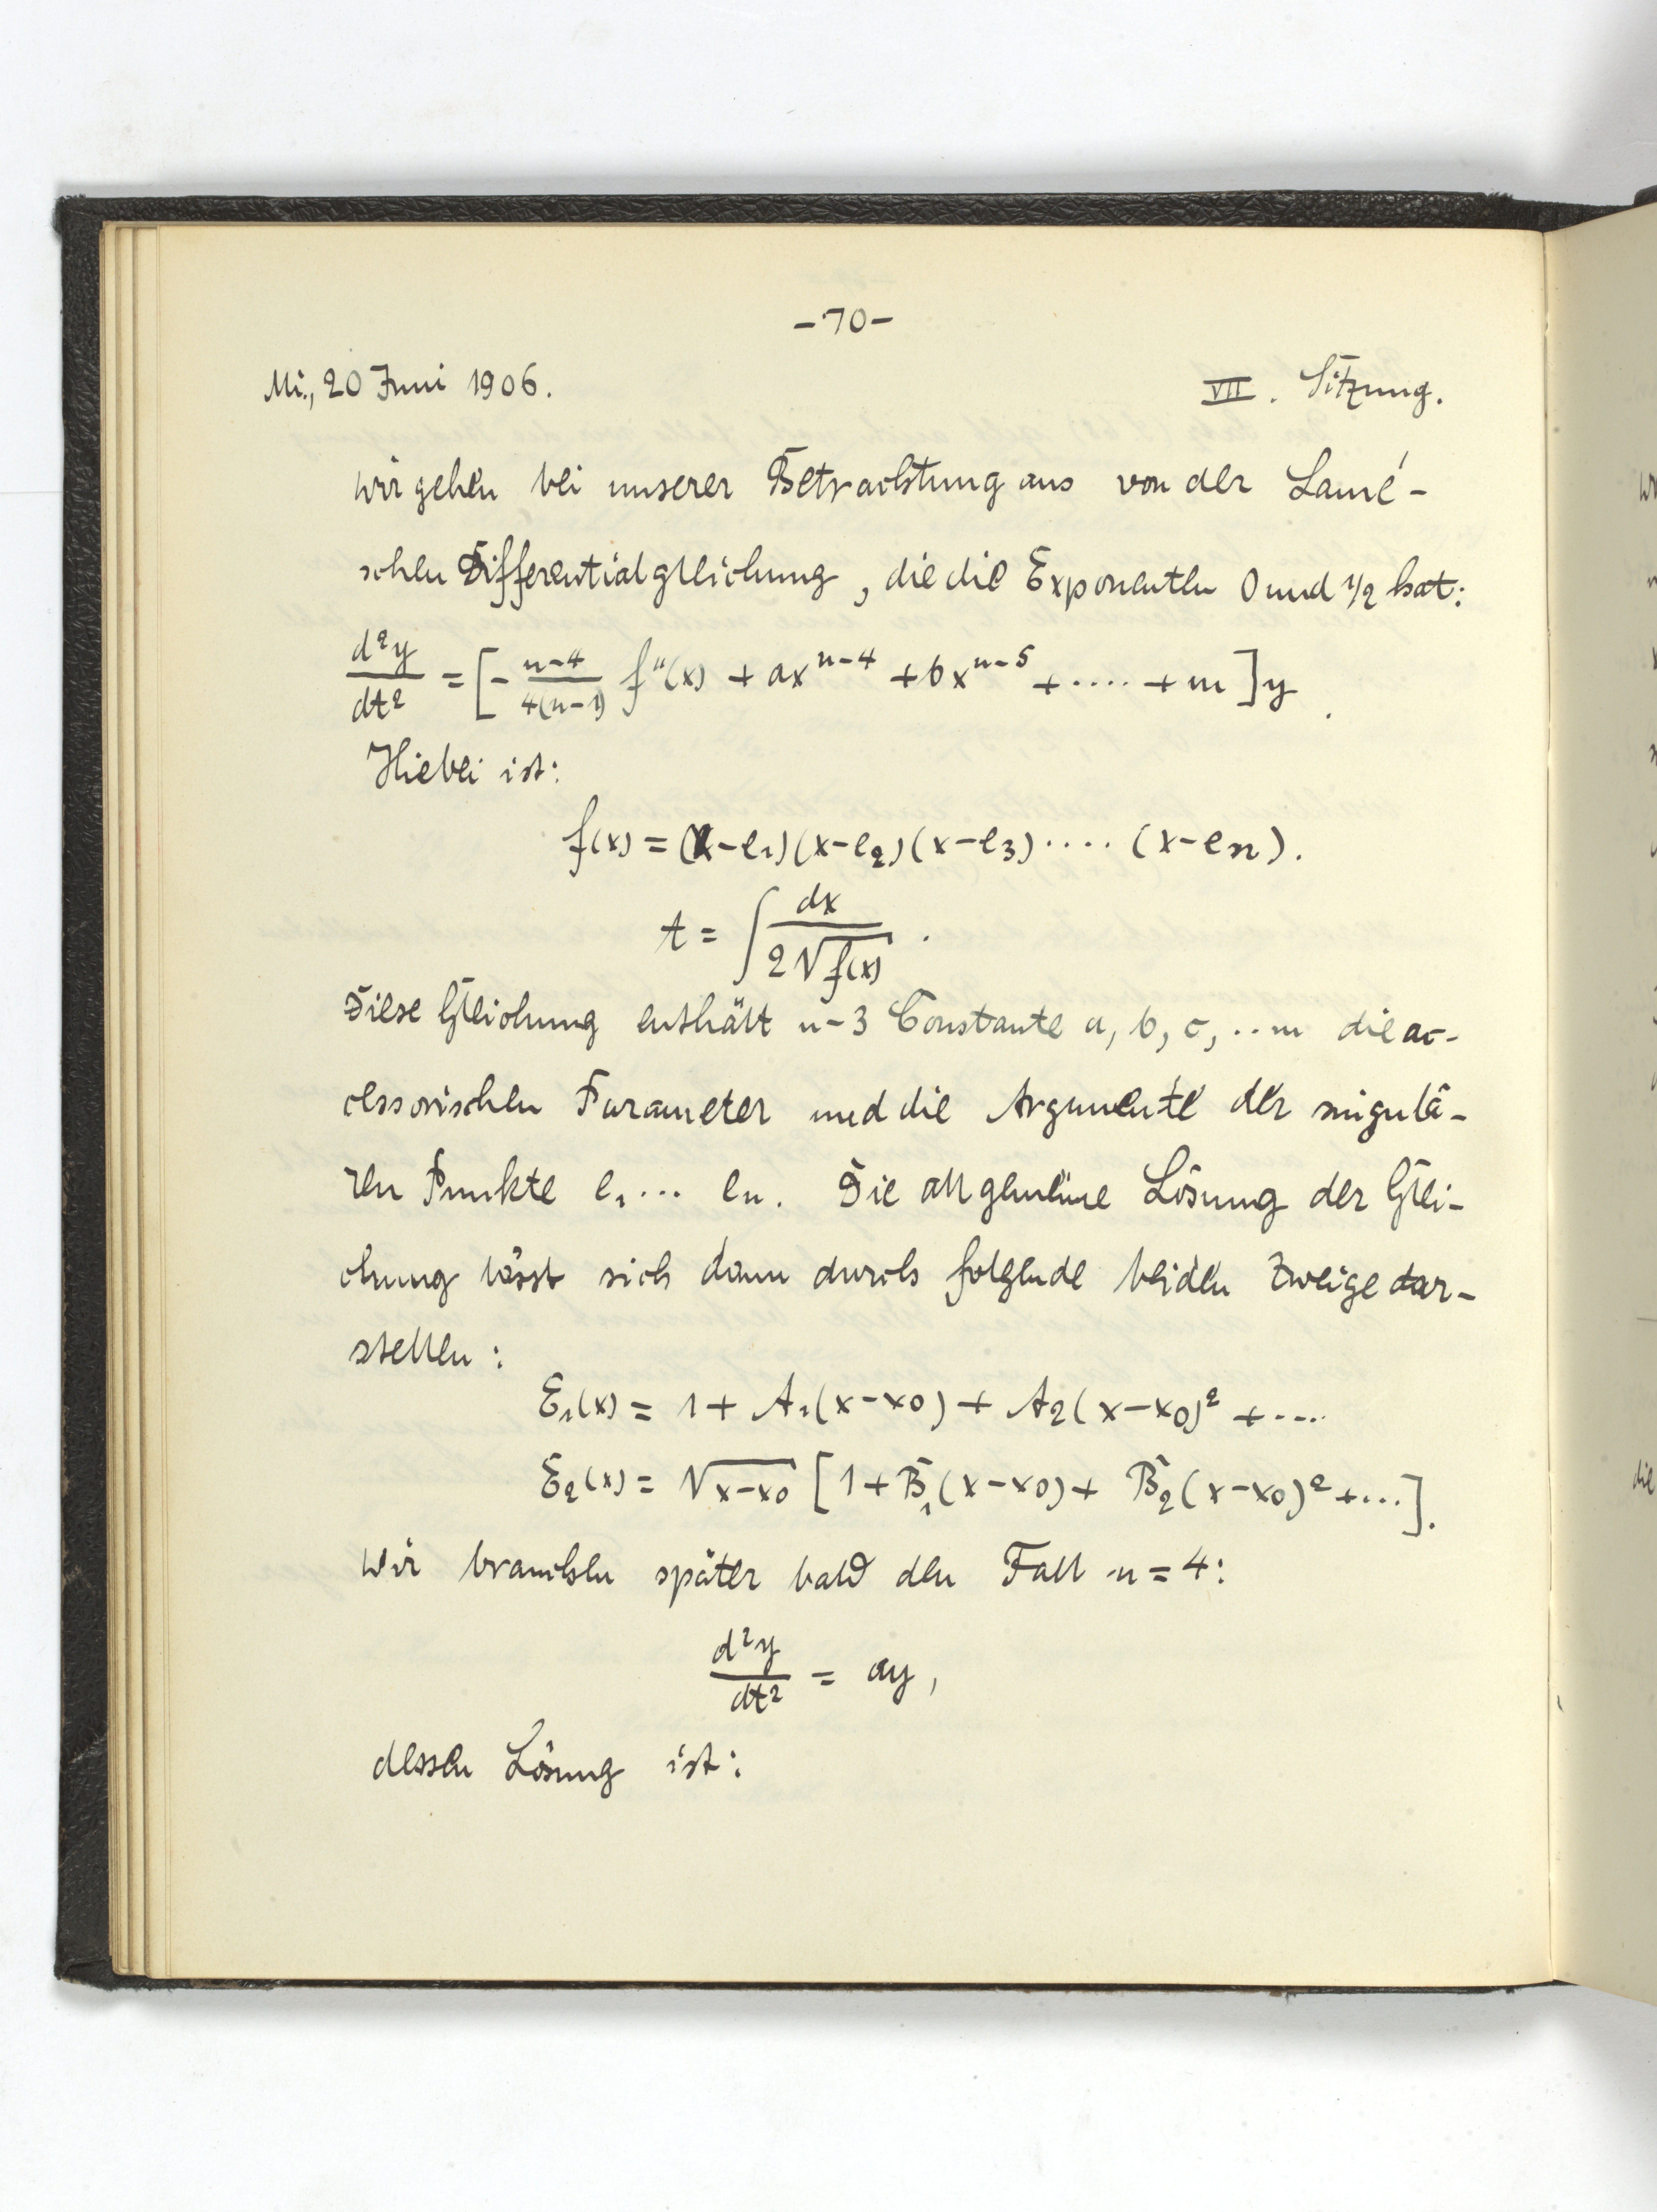 -70-
Mi., 20 Juni 1906. VII. Sitzung.
Wir gehen bei unserer Betrachtung aus von der Lamé-
schen Differentialgleichung, die die Exponenten 0 und 1/2 hat:
d²y/dt² = [- (n-4)/(4(n-1)) f''(x) + ax^{n-4} + bx^{n-5} + .... + m ] y.
Hiebei ist:
f(x) = (x-e₁)(x-e₂)(x-e₃) .... (x-eₙ).
t = ∫ dx/(2√f(x)).
Diese Gleichung enthält n-3 Constante a, b, c, .. m die ac-
cessorischen Parameter und die Argumente der singulä-
ren Punkte e₁ ... eₙ. Die allgemeine Lösung der Glei-
chung lässt sich dann durch folgende beiden Zweige dar-
stellen:
E₁(x) = 1 + A₁(x-x₀) + A₂(x-x₀)² + ....
E₂(x) = √(x-x₀) [1 + B₁(x-x₀) + B₂(x-x₀)² + ...].
Wir brauchen später bald den Fall n = 4:
d²y/dt² = ay,
dessen Lösung ist:
die